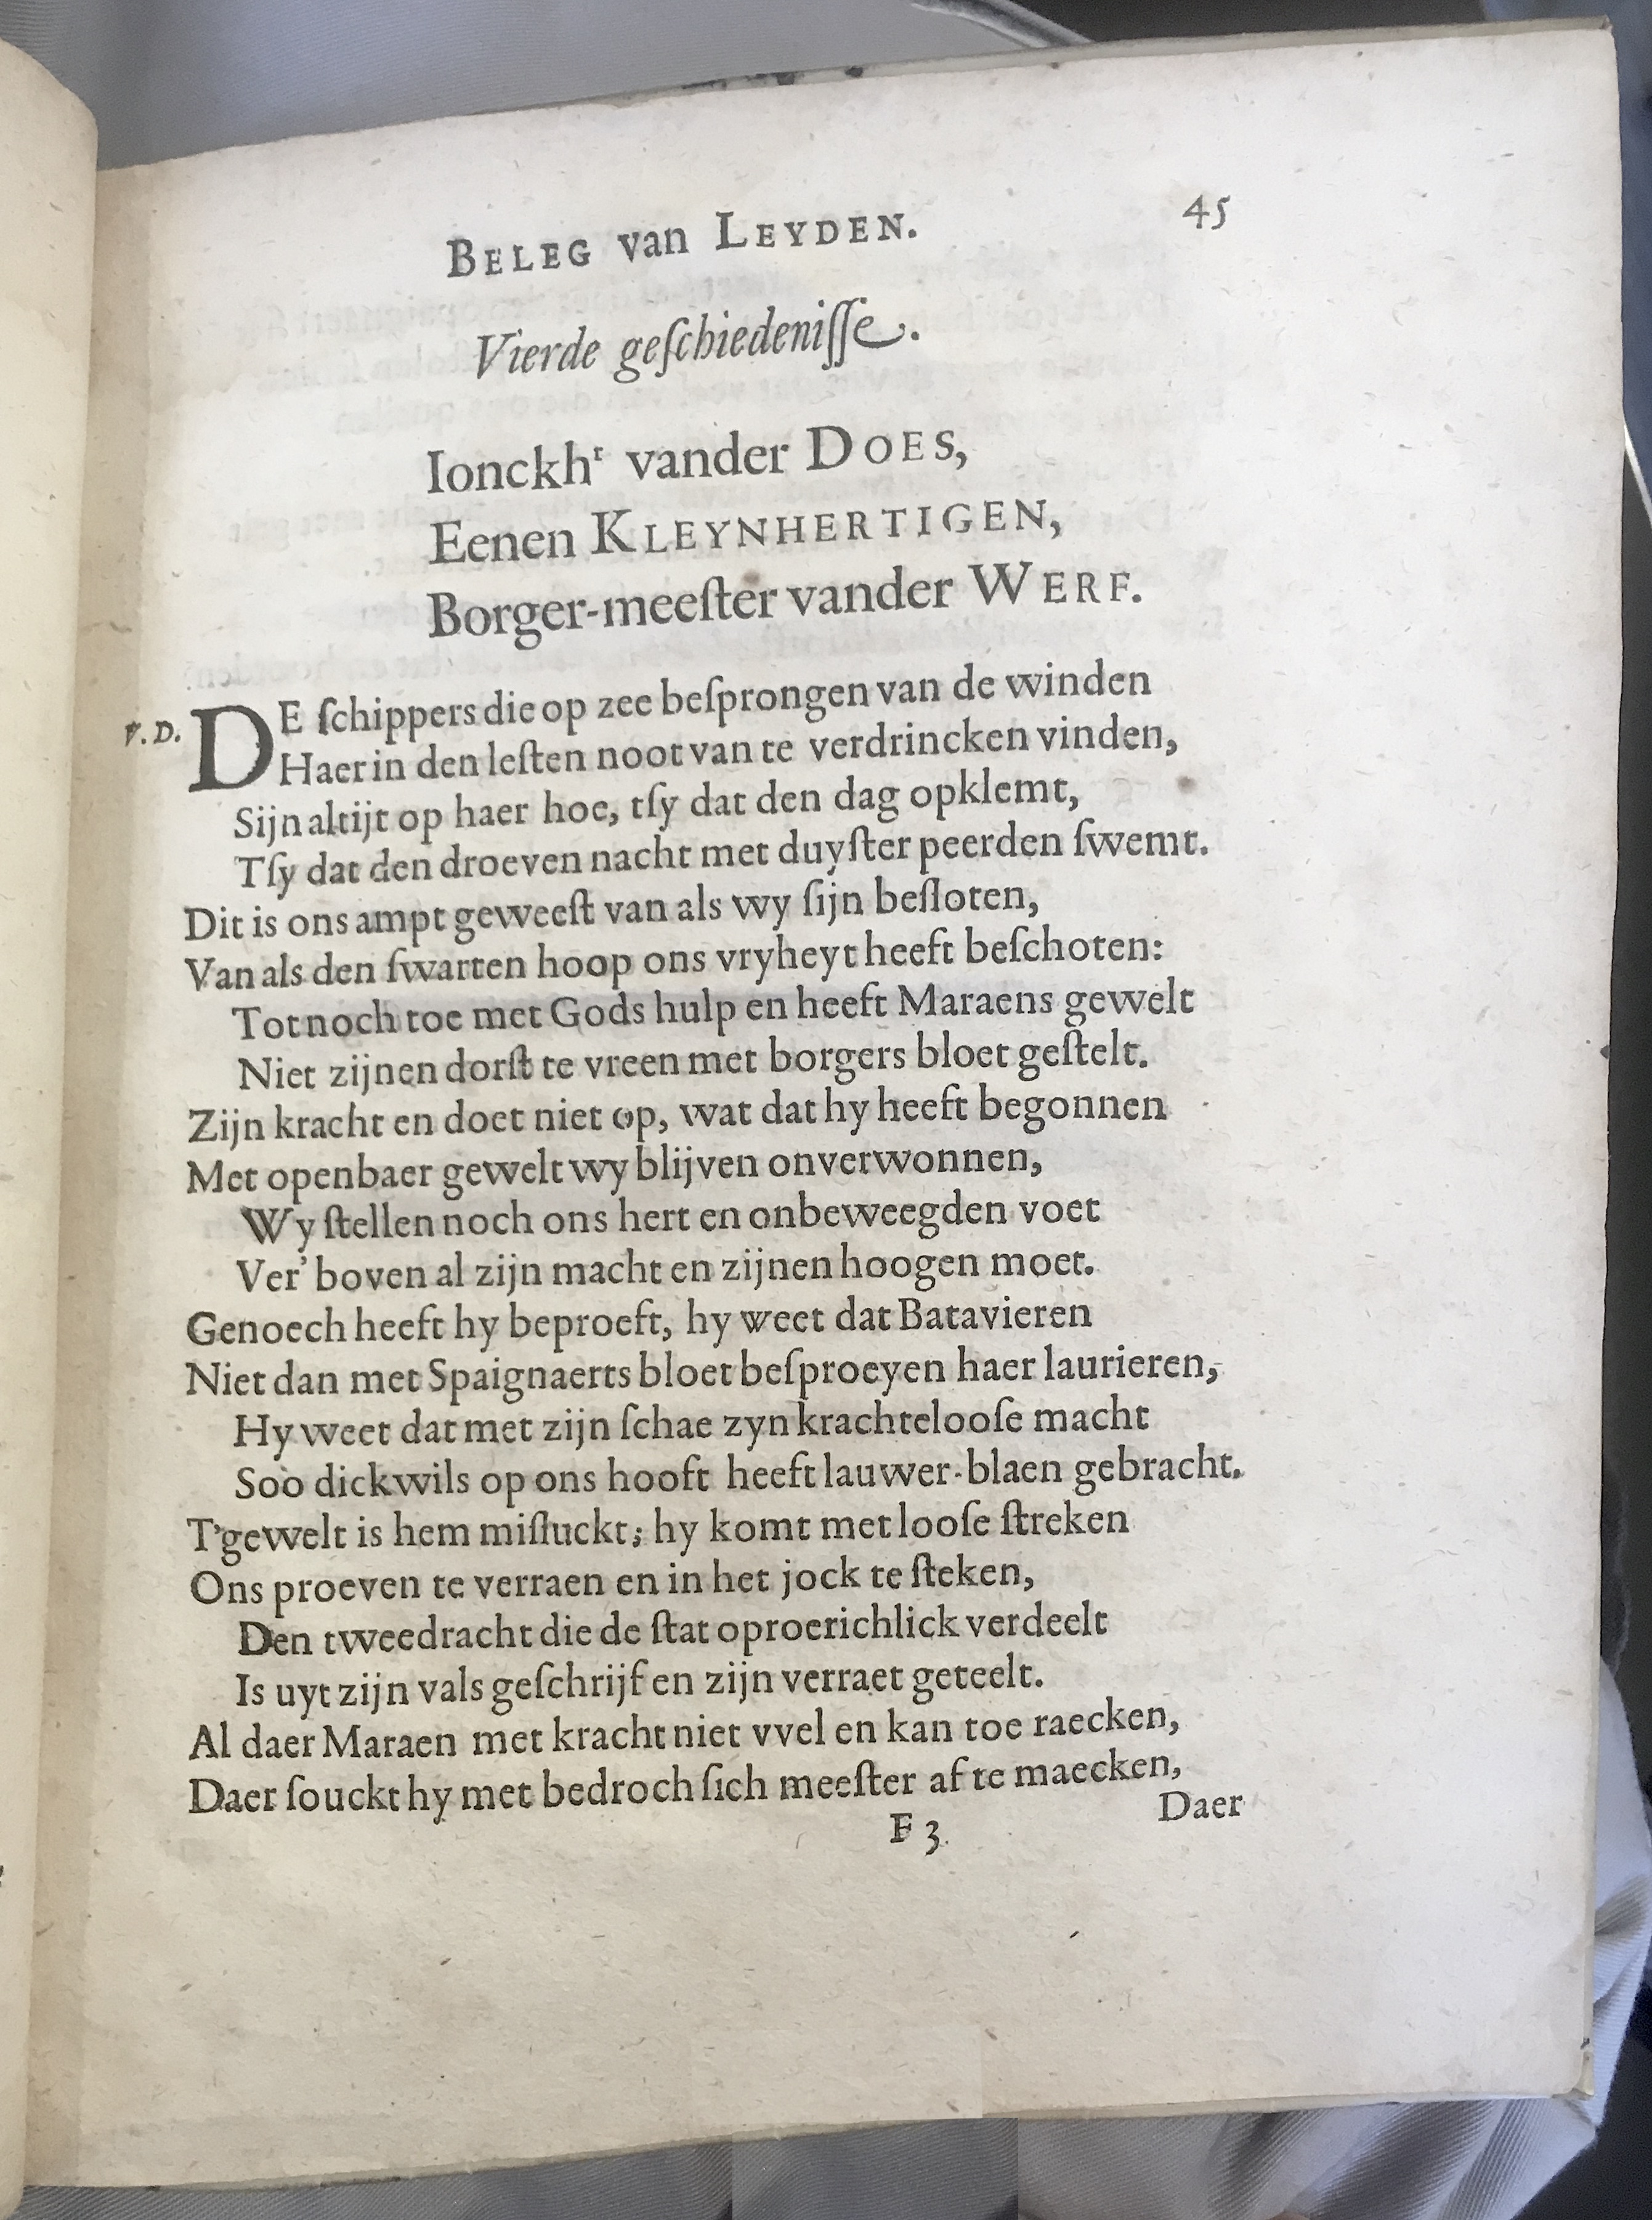 BELEG van LEYDEN. 45
Vierde geſchiedeniſſe.
Ionckhr vander DOES,
Eenen KLEYNHERTIGEN,
Borger-meeſter vander WERF.
V.D. DE ſchippers die op zee beſprongen van de winden
Haer in den leſten noot van te verdrincken vinden,
Sijn altijt op haer hoe, tſy dat den dag opklemt,
Tſy dat den droeven nacht met duyſter peerden ſwemt.
Dit is ons ampt geweeſt van als wy ſijn beſloten,
Van als den ſwarten hoop ons vryheyt heeft beſchoten:
Tot noch toe met Gods hulp en heeft Maraens gewelt
Niet zijnen dorſt te vreen met borgers bloet geſtelt.
Zijn kracht en doet niet op, wat dat hy heeft begonnen
Met openbaer gewelt wy blijven onverwonnen,
Wy ſtellen noch ons hert en onbeweegden voet
Ver' boven al zijn macht en zijnen hoogen moet.
Genoech heeft hy beproeft, hy weet dat Batavieren
Niet dan met Spaignaerts bloet beſproeyen haer laurieren,
Hy weet dat met zijn ſchae zyn krachtelooſe macht
Soo dickwils op ons hooft heeft lauwer-blaen gebracht.
T'gewelt is hem miſluckt; hy komt met looſe ſtreken
Ons proeven te verraen en in het jock te ſteken,
Den tweedracht die de ſtat oproerichlick verdeelt
Is uyt zijn vals geſchrijf en zijn verraet geteelt.
Al daer Maraen met kracht niet vvel en kan toe raecken,
Daer ſouckt hy met bedroch ſich meeſter af te maecken,
F 3 Daer